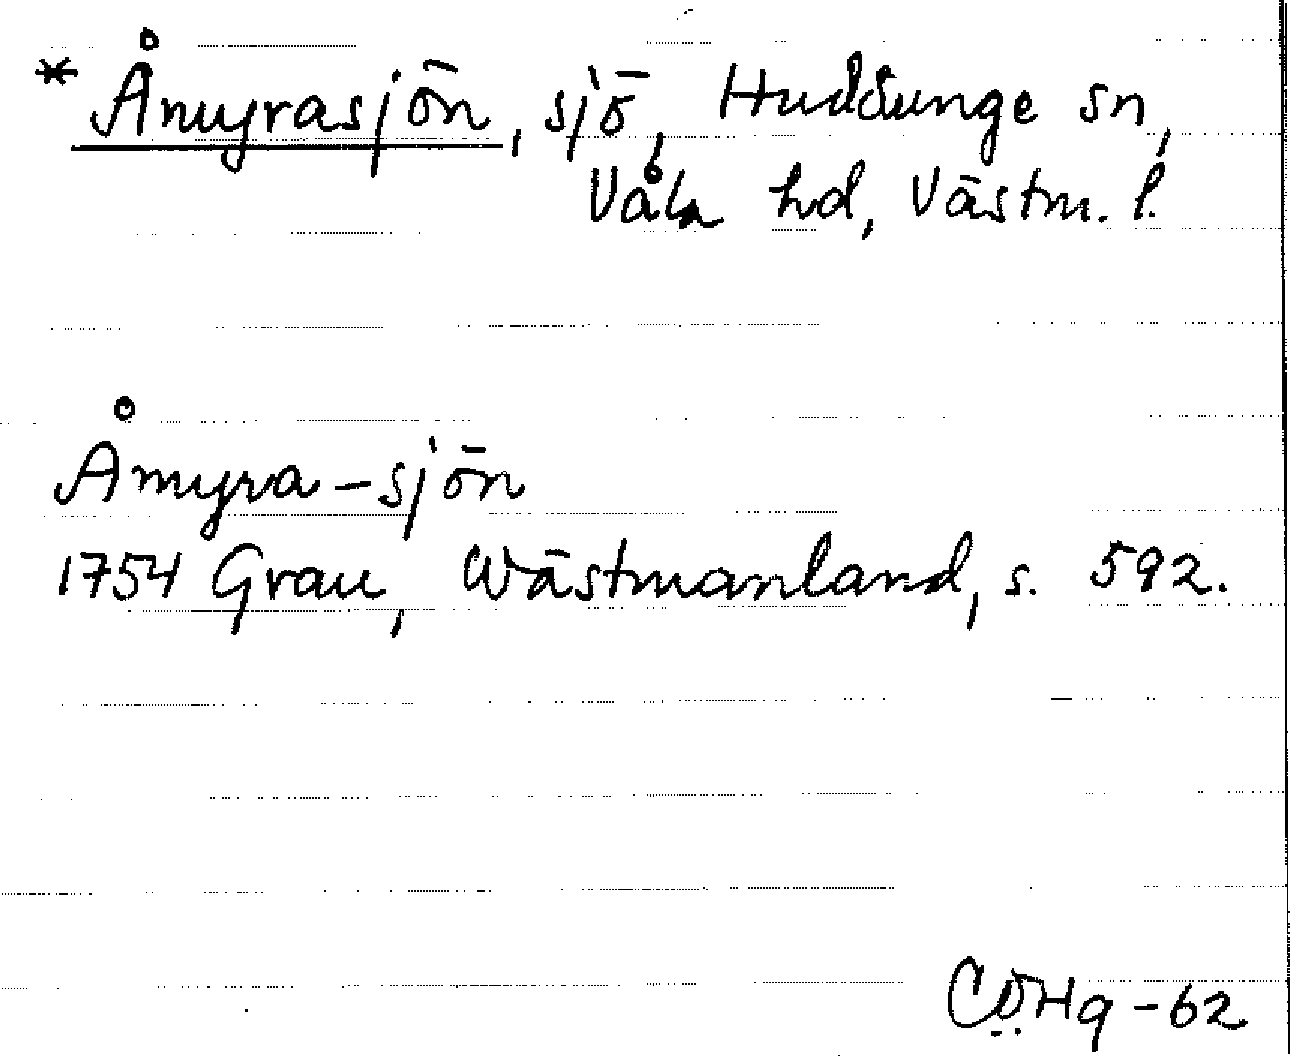 * Åmyrasjön, sjö, Huddunge sn,
Våla hd, Västm. l.
Åmyra-sjön
1754 Grau, Wästmanland, s. 592.
CÖHg-62